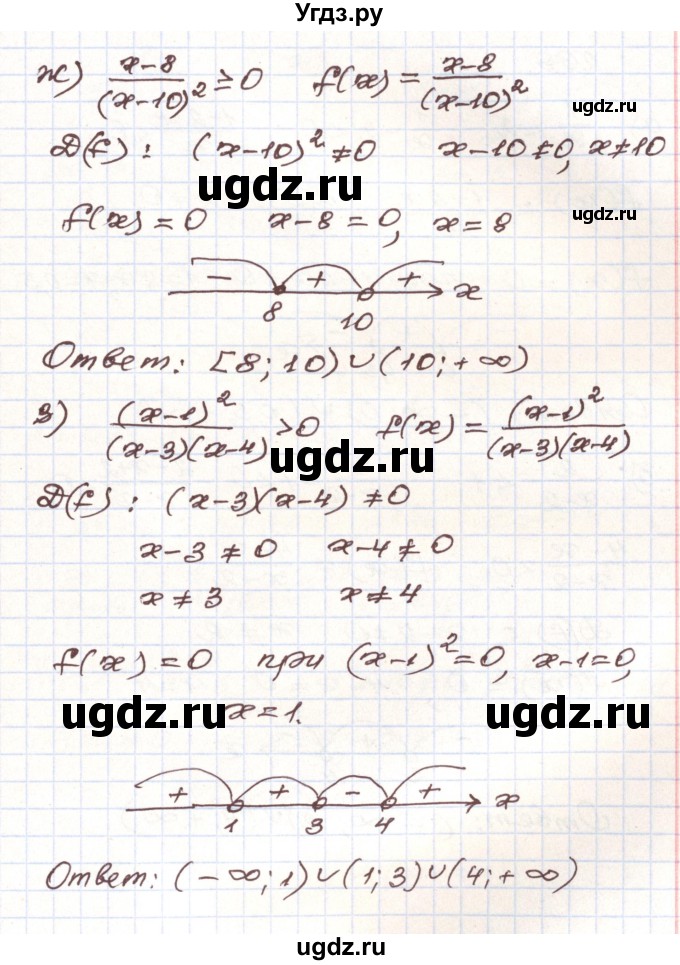 Угдз.ру
ж) (x-8)/(x-10)² ≥ 0 f(x) = (x-8)/(x-10)²
ugdz.ru
D(f): (x-10)² ≠ 0 x-10 ≠ 0, x ≠ 10
ugdz.ru
f(x) = 0 x-8 = 0, x = 8
ugdz.ru
- + + x
8 10
Ответ: [8; 10) ∪ (10; +∞)
з) (x-1)²/((x-3)(x-4)) > 0 f(x) = (x-1)²/((x-3)(x-4))
ugdz.ru
D(f): (x-3)(x-4) ≠ 0
x-3 ≠ 0 x-4 ≠ 0
x ≠ 3 x ≠ 4
f(x) = 0 при (x-1)² = 0, x-1 = 0,
ugdz.ru x = 1. ugdz.ru
+ + - + x
1 3 4
Ответ: (-∞; 1) ∪ (1; 3) ∪ (4; +∞)
ugdz.ru